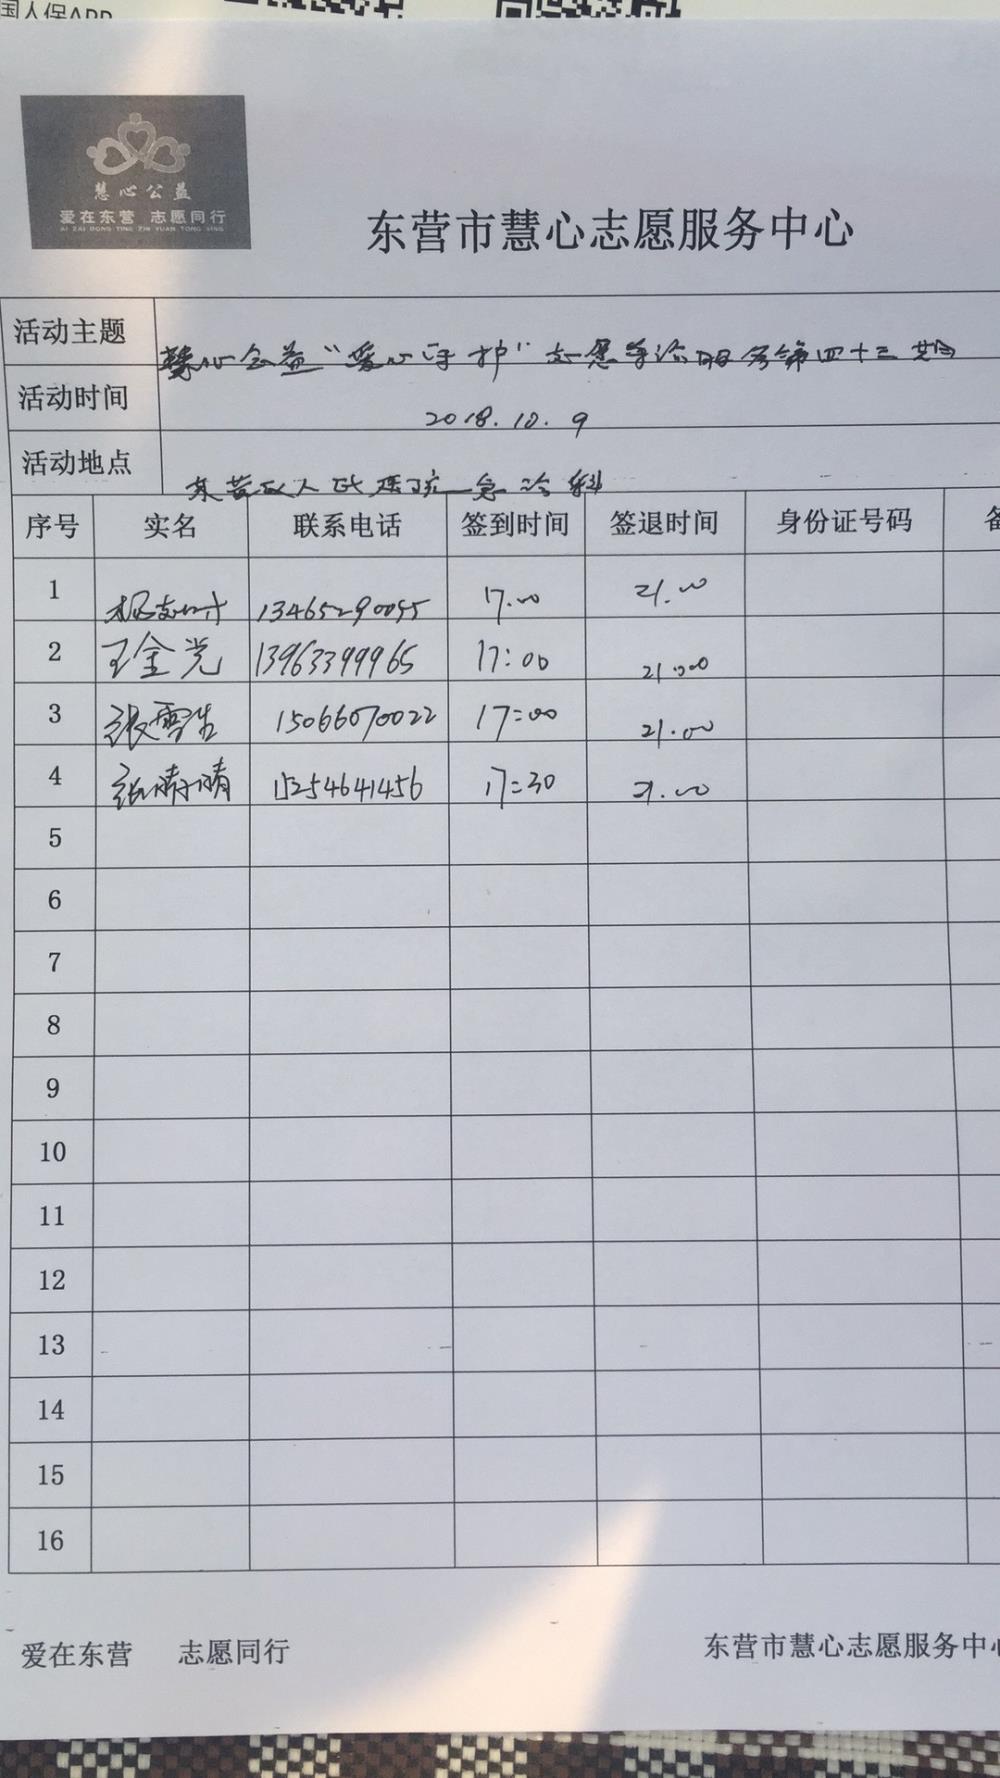 国人保APP
慧心公益
爱在东营 志愿同行
AI ZAI DONG YING ZHI YUAN TONG XING
东营市慧心志愿服务中心
活动主题 慧心公益“爱心守护”志愿导诊服务第四十三期
活动时间 2018.10.9
活动地点 东营市人民医院急诊科
序号 实名 联系电话 签到时间 签退时间 身份证号码 备
1 13465290055 17.00 21.00
2 王金党 13963399965 17:00 21.00
3 张雪生 15066070022 17:00 21.00
4 张晴晴 15254641456 17:30 21.00
5
6
7
8
9
10
11
12
13
14
15
16
爱在东营 志愿同行 东营市慧心志愿服务中心